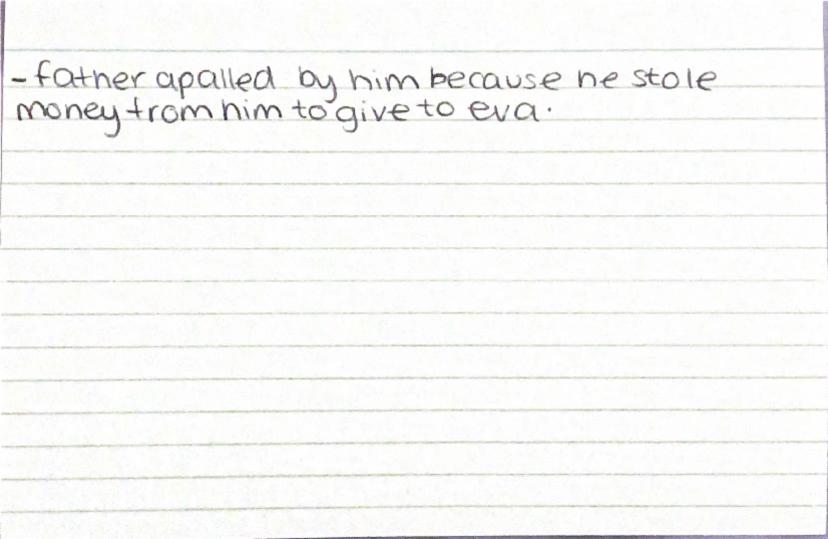 - father apalled by him because he stole
money from him to give to eva.